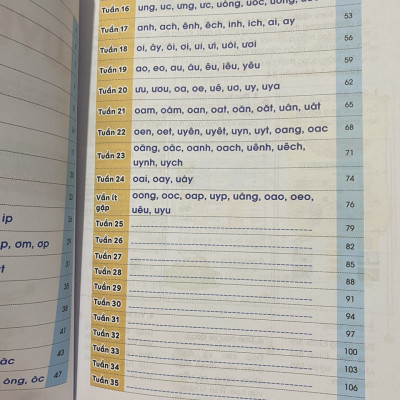 Tuần 16 ung, uc, ưng, ưc, uông, uôc, ương, ươc
53
Tuần 17 anh, ach, ênh, êch, inh, ich, ai, ay
56
Tuần 18 oi, ây, ôi, ơi, ui, ưi, uôi, ươi
59
Tuần 19 ao, eo, au, âu, êu, iêu, yêu
62
Tuần 20 ưu, ươu, oa, oe, uê, uơ, uy, uya
65
Tuần 21 oam, oăm, oan, oat, oăn, oăt, uân, uât
68
Tuần 22 oen, oet, uyên, uyêt, uyn, uyt, oang, oac
Tuần 23 oăng, oăc, oanh, oach, uênh, uêch,
uynh, uych
71
Tuần 24 oai, oay, uây
74
Vần ít
gặp
oong, ooc, oap, uyp, uâng, oao, oeo,
uêu, uyu
76
Tuần 25 79
Tuần 26 82
Tuần 27 85
Tuần 28 88
Tuần 29 91
Tuần 30 94
Tuần 31 97
Tuần 32 100
Tuần 33 103
Tuần 34 106
Tuần 35
ip
p, om, op
35
38
41
43
ăc
ông, ôc 47